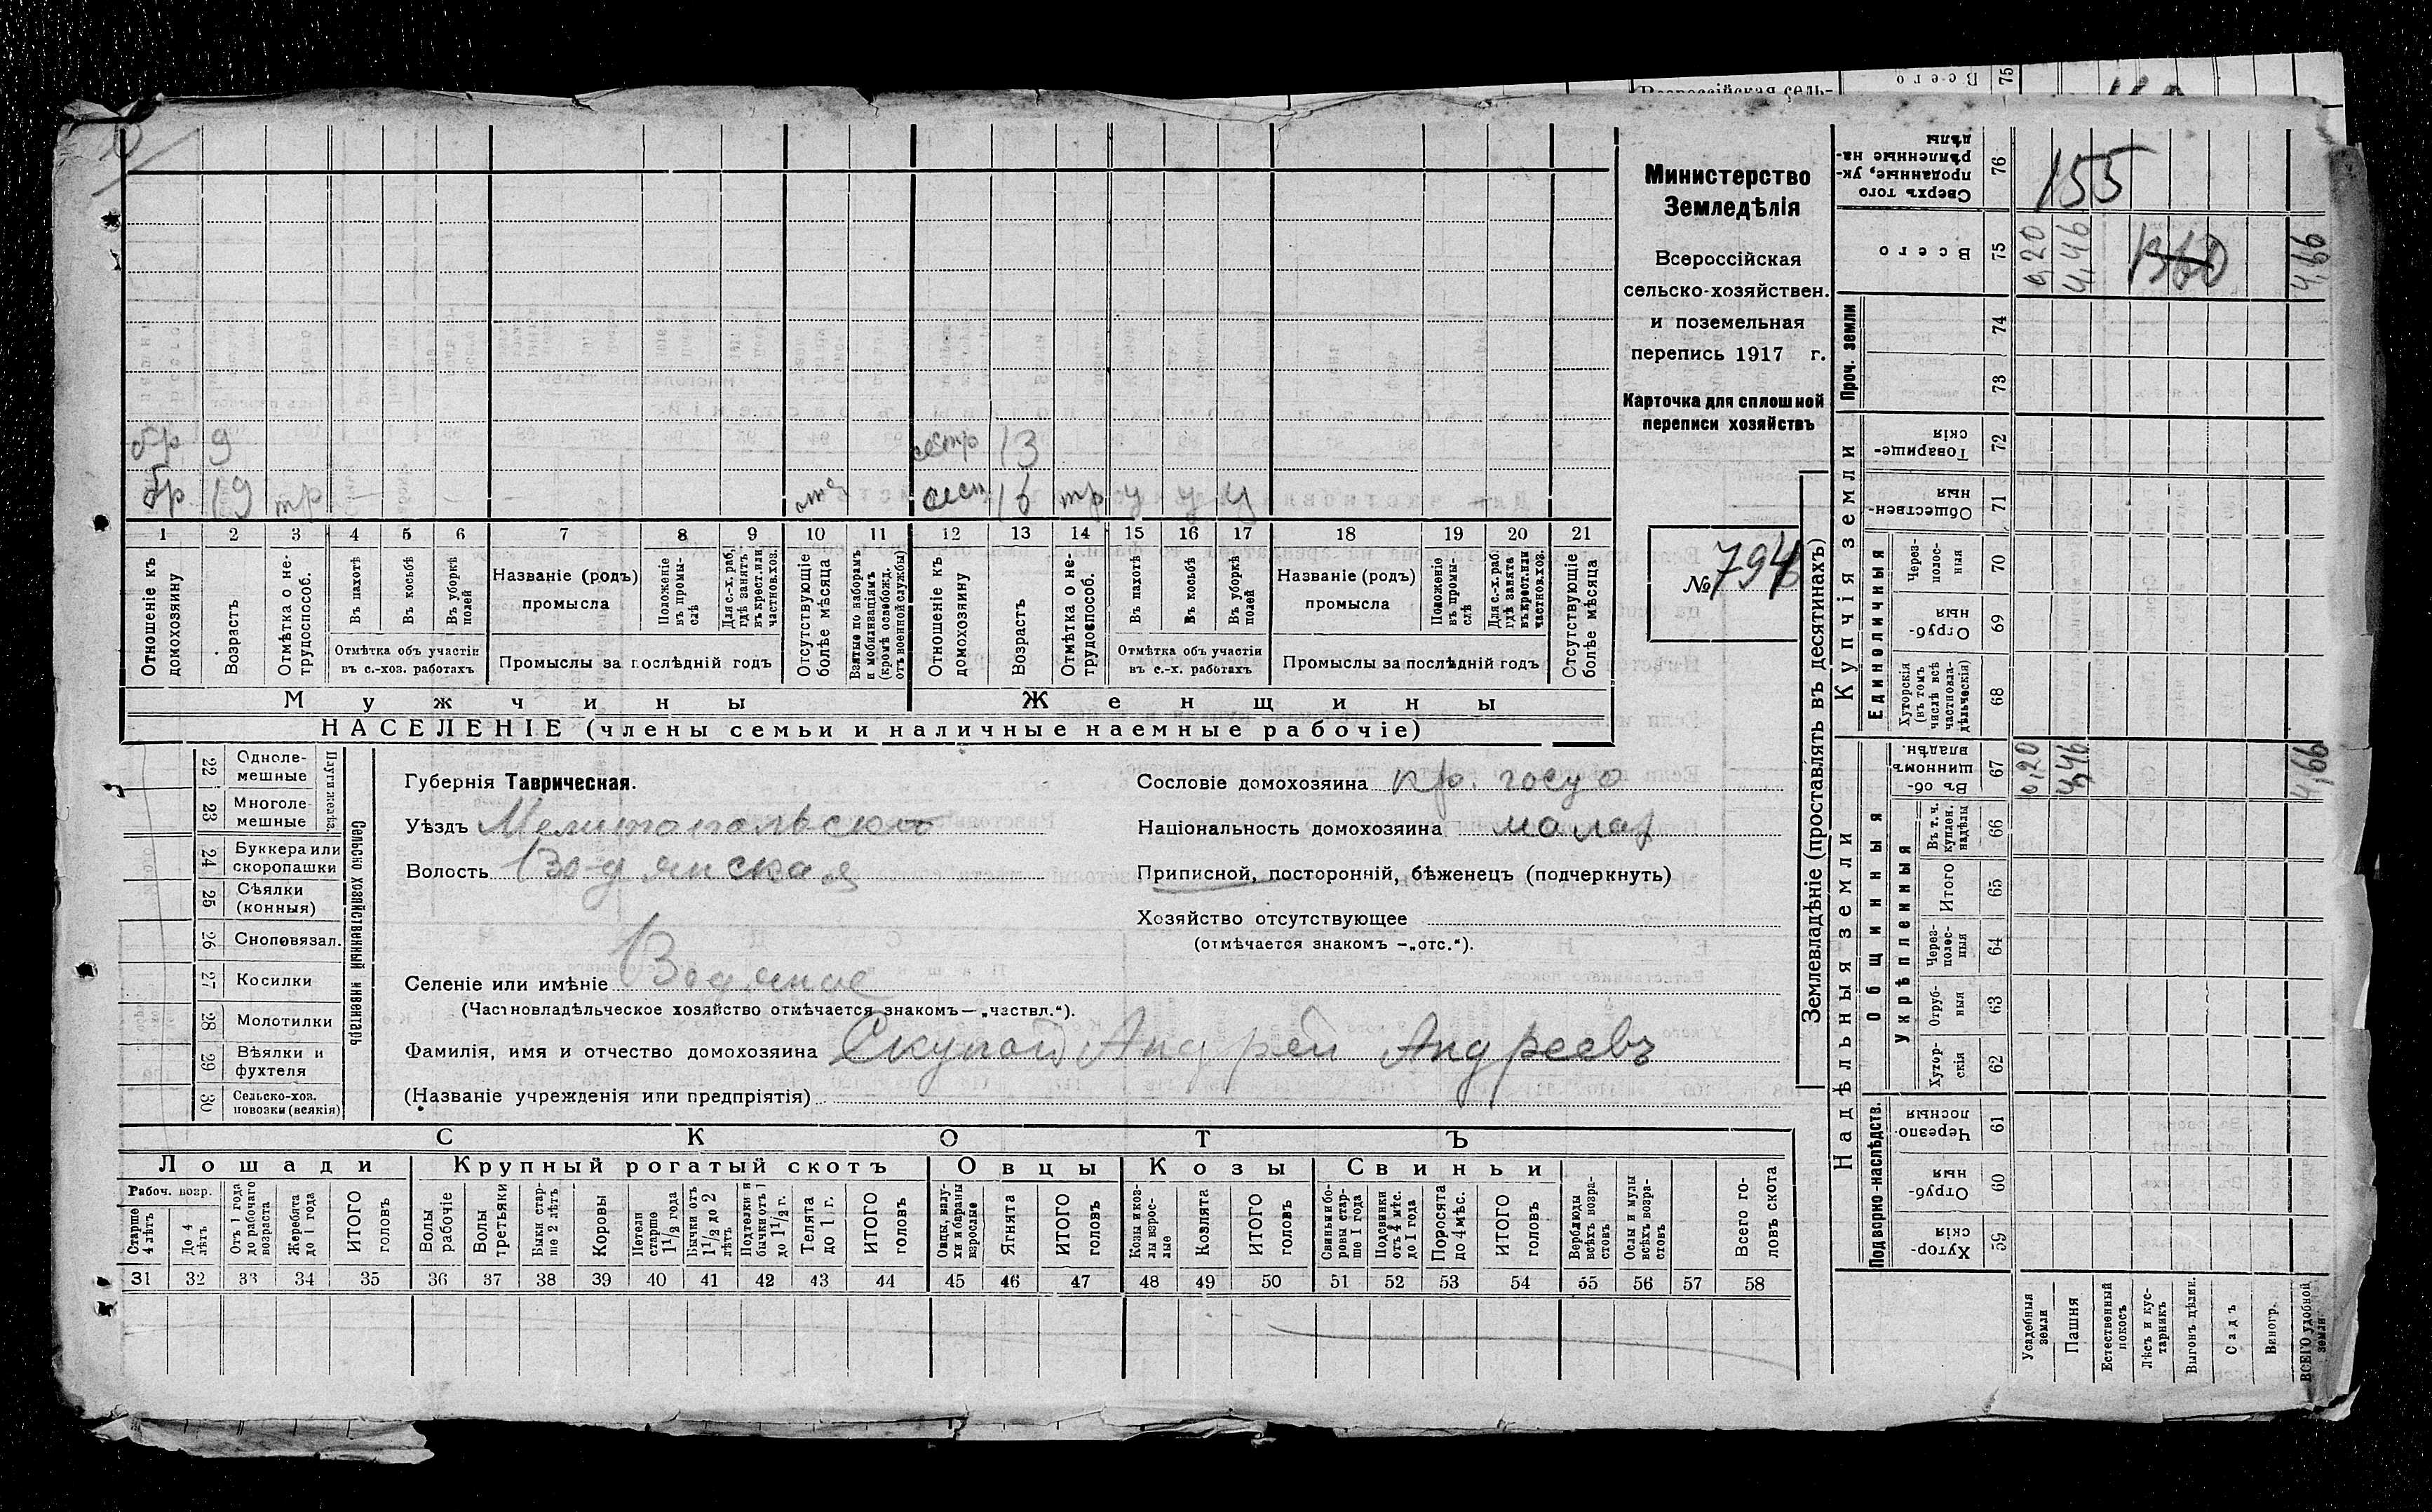 Министерство
Земледѣлія
Всероссійская
сельско-хозяйствен.
и поземельная
перепись 1917 г.
Карточка для сплошной
переписи хозяйствъ
№ 794
бр 9 сестр 13
бр 19 тр сест 16 тр у у у
1 2 3 4 5 6 7 8 9 10 11 12 13 14 15 16 17 18 19 20 21
Отношеніе къ домохозяину
Возрастъ
Отмѣтка о не-трудоспособ.
Въ пахотѣ
Въ косьбѣ
Въ уборкѣ полей
Отмѣтка объ участіи
въ с.-хоз. работахъ
Названіе (родъ)
промысла
Положеніе въ промы-слѣ
Для с.-х. раб. гдѣ занятъ въ крест. или частнов. хоз.
Промыслы за послѣдній годъ
Отсутствующіе болѣе мѣсяца
Взятые по наборамъ и мобилизаціямъ (кромѣ освобожд. отъ военной службы)
Отношеніе къ домохозяину
Возрастъ
Отмѣтка о не-трудоспособ.
Въ пахотѣ
Въ косьбѣ
Въ уборкѣ полей
Отмѣтка объ участіи
въ с.-х. работахъ
Названіе (родъ)
промысла
Положеніе въ промы-слѣ
Для с.-х. раб. гдѣ занята въ крест. или частнов. хоз.
Промыслы за послѣдній годъ
Отсутствующіе болѣе мѣсяца
Мужчины Женщины
НАСЕЛЕНІЕ (члены семьи и наличные наемные рабочіе)
Сельско хозяйственный инвентарь
Плуги желѣз.
22 Одноле-мешные
23 Многоле-мешные
24 Буккера или скоропашки
25 Сѣялки (конныя)
26 Сноповязал.
27 Косилки
28 Молотилки
29 Вѣялки и фухтеля
30 Сельско-хоз. повозки (всякія)
Губернія Таврическая.
Уѣздъ Мелитопольского
Волость Водянская
Селеніе или имѣніе Водяное
(Частновладѣльческое хозяйство отмѣчается знакомъ — „частвл.“).
Фамилія, имя и отчество домохозяина Скупой Андрей Андреевъ
(Названіе учрежденія или предпріятія)
Сословіе домохозяина кр. госуд
Національность домохозяина малор
Приписной, посторонній, бѣженецъ (подчеркнуть)
Хозяйство отсутствующее
(отмѣчается знакомъ — „отс.“).
СКОТЪ
Лошади Крупный рогатый скотъ Овцы Козы Свиньи
Рабоч. возр.
Старше 4 лѣтъ
До 4 лѣтъ
Отъ 1 года до рабочаго возраста
Жеребята до 1 года
ИТОГО головъ
Волы рабочіе
Волы третьяки
Быки стар-ше 2 лѣтъ
Коровы
Нетели старше 1½ года
Бычки отъ 1½ до 2 лѣтъ
Подтелки и бычки отъ 1 до 1½ г.
Телята до 1 г.
ИТОГО головъ
Овцы, валу-хи и бараны взрослые
Ягнята
ИТОГО головъ
Козы и коз-лы взрос-лые
Козлята
ИТОГО головъ
Свиньи и бо-ровы стар-ше 1 года
Подсвинки отъ 4 мѣс. до 1 года
Поросята до 4 мѣс.
ИТОГО головъ
Верблюды всѣхъ возра-стовъ
Ослы и мулы всѣхъ возра-стовъ
Всего го-ловъ скота
31 32 33 34 35 36 37 38 39 40 41 42 43 44 45 46 47 48 49 50 51 52 53 54 55 56 57 58
Землевладѣніе (проставлять въ десятинахъ)
Сверхъ того проданные, ук-рѣпленные на-дѣлы 76 155
Всего 75 0,20 4,46 4,66
Проч. земли
74
73
Купчія земли
Товарище-скія 72
Обществен-ныя 71
Единоличныя
Через-полос-ныя 70
Отруб-ныя 69
Хуторскія (въ томъ числѣ всѣ частновла-дѣльческія) 68
Надѣльныя земли
Общинныя
Въ об-щинномъ владѣн. 67 0,20 4,46 4,66
Укрѣпленныя
Въ т. ч. куплен. надѣлы 66
Итого 65
Через-полос-ныя 64
Отруб-ныя 63
Хутор-скія 62
Подворно-наслѣдств.
Черезпо-лосныя 61
Отруб-ныя 60
Хутор-скія 59
Усадебныя земли
Пашня
Естественный покосъ
Лѣсъ и кус-тарникъ
Выгонъ цѣлин.
Садъ
Виногр.
ВСЕГО удобной земли
Всего 75